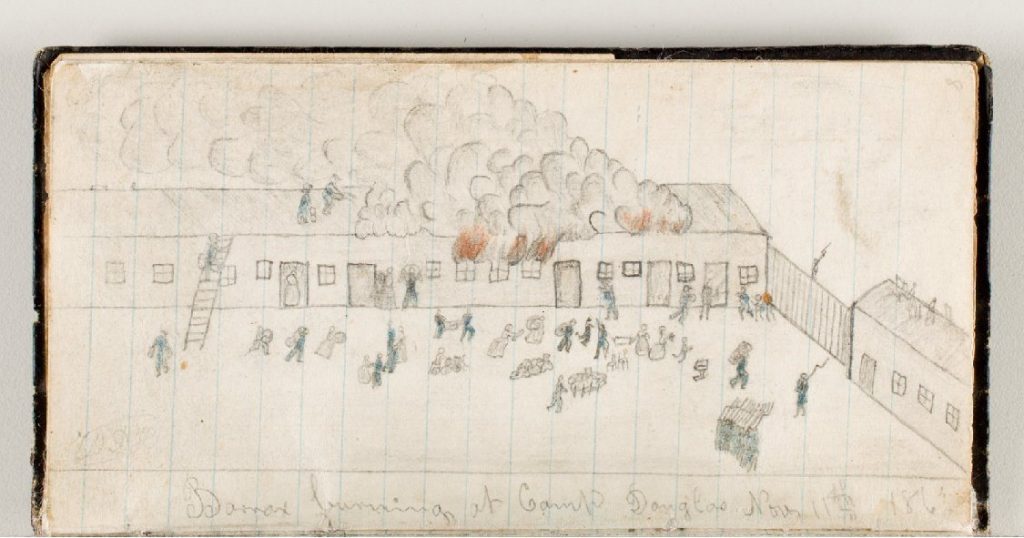 Barrax burning at Camp Douglas Nov 11th 186